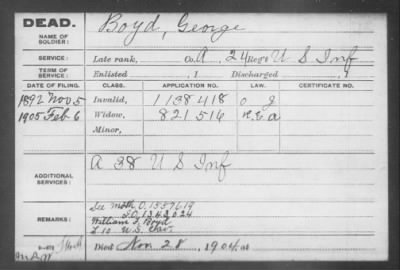 DEAD.
Boyd, George
NAME OF SOLDIER:
SERVICE:
Late rank, Co. A, 24 Reg't U S Inf
TERM OF SERVICE:
Enlisted , 1 Discharged , 1
DATE OF FILING. CLASS. APPLICATION NO. LAW. CERTIFICATE NO.
1892 Nov 5 Invalid, 1138418 o g
1905 Feb 6 Widow, 821516
Minor,
A 38 U S Inf
ADDITIONAL SERVICES:
See Moth O. 1557619
I.O. 1343024
REMARKS:
William F. Boyd
L 10 U.S. Cav.
Died Nov 28, 1904, at